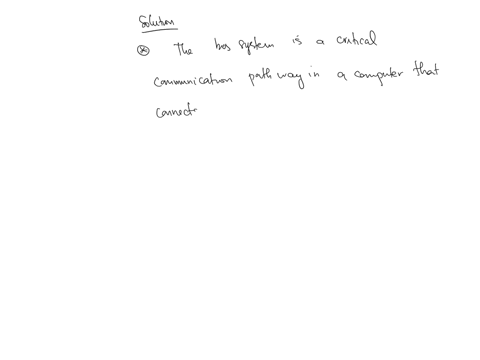 Solution
⊛ The bus system is a critical
communication path way in a computer that
connects